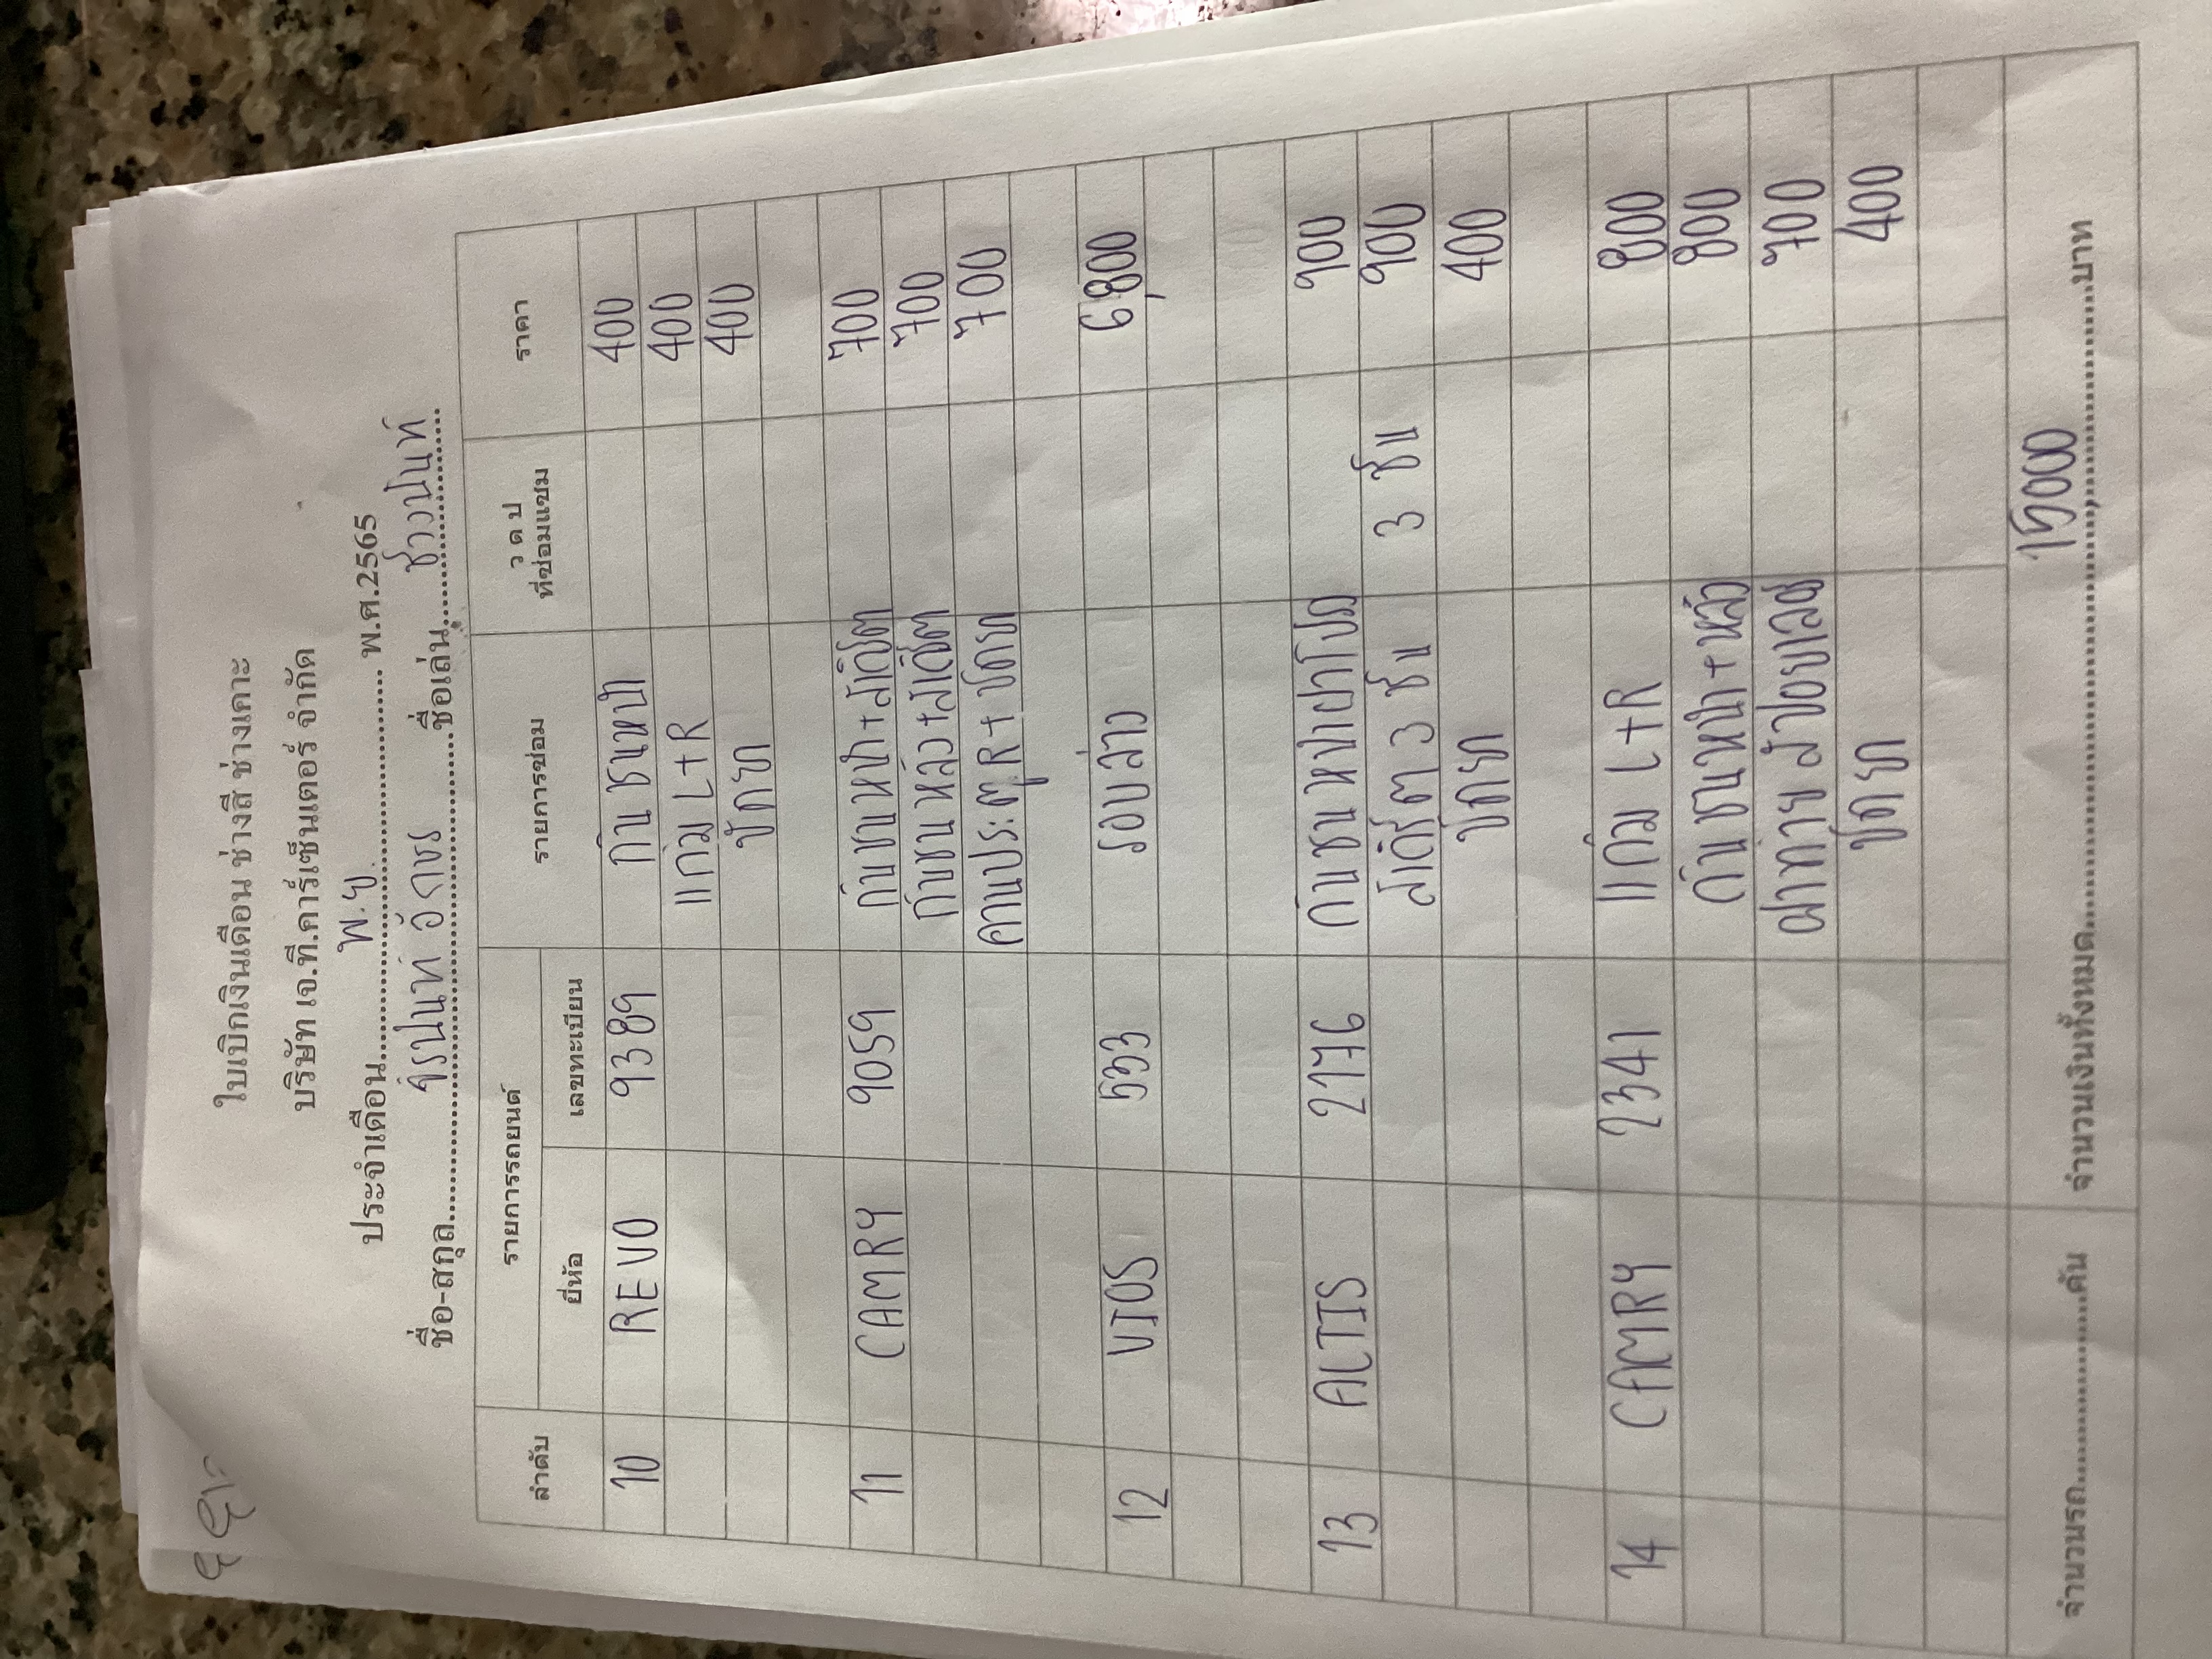 ใบเบิกเงินเดือน ช่างสี ช่างเคาะ
บริษัท เจ.ที.คาร์เซ็นเตอร์ จำกัด
ประจำเดือน พ.ย. พ.ศ.2565
ชื่อ-สกุล จิรปนนท์ อักษร ชื่อเล่น
ลำดับ รายการรถยนต์ รายการซ่อม ว ด ป ที่ซ่อมแซม ราคา
ยี่ห้อ เลขทะเบียน
10 REVO 9389 กันชนหน้า 400
แก้ม L+R 400
ขัดยา 400
11 CAMRY 9059 กันชนหน้า+สเกิร์ต 700
กันชนหลัง+สเกิร์ต 700
คานประตู R+ขัดยา 700
12 VIOS 533 รอบล่าง 6,800
13 ALTIS 2176 กันชนหน้าฝาโปรง 900
สเกิร์ต 3 ชิ้น 3 ชิ้น 900
ขัดยา 400
14 CAMRY 2341 แก้ม L+R 800
กันชนหน้า+หลัง 800
ฝาท้าย สปอยเลอ 700
ขัดยา 400
จำนวนรถ คัน จำนวนเงินทั้งหมด 15000 บาท